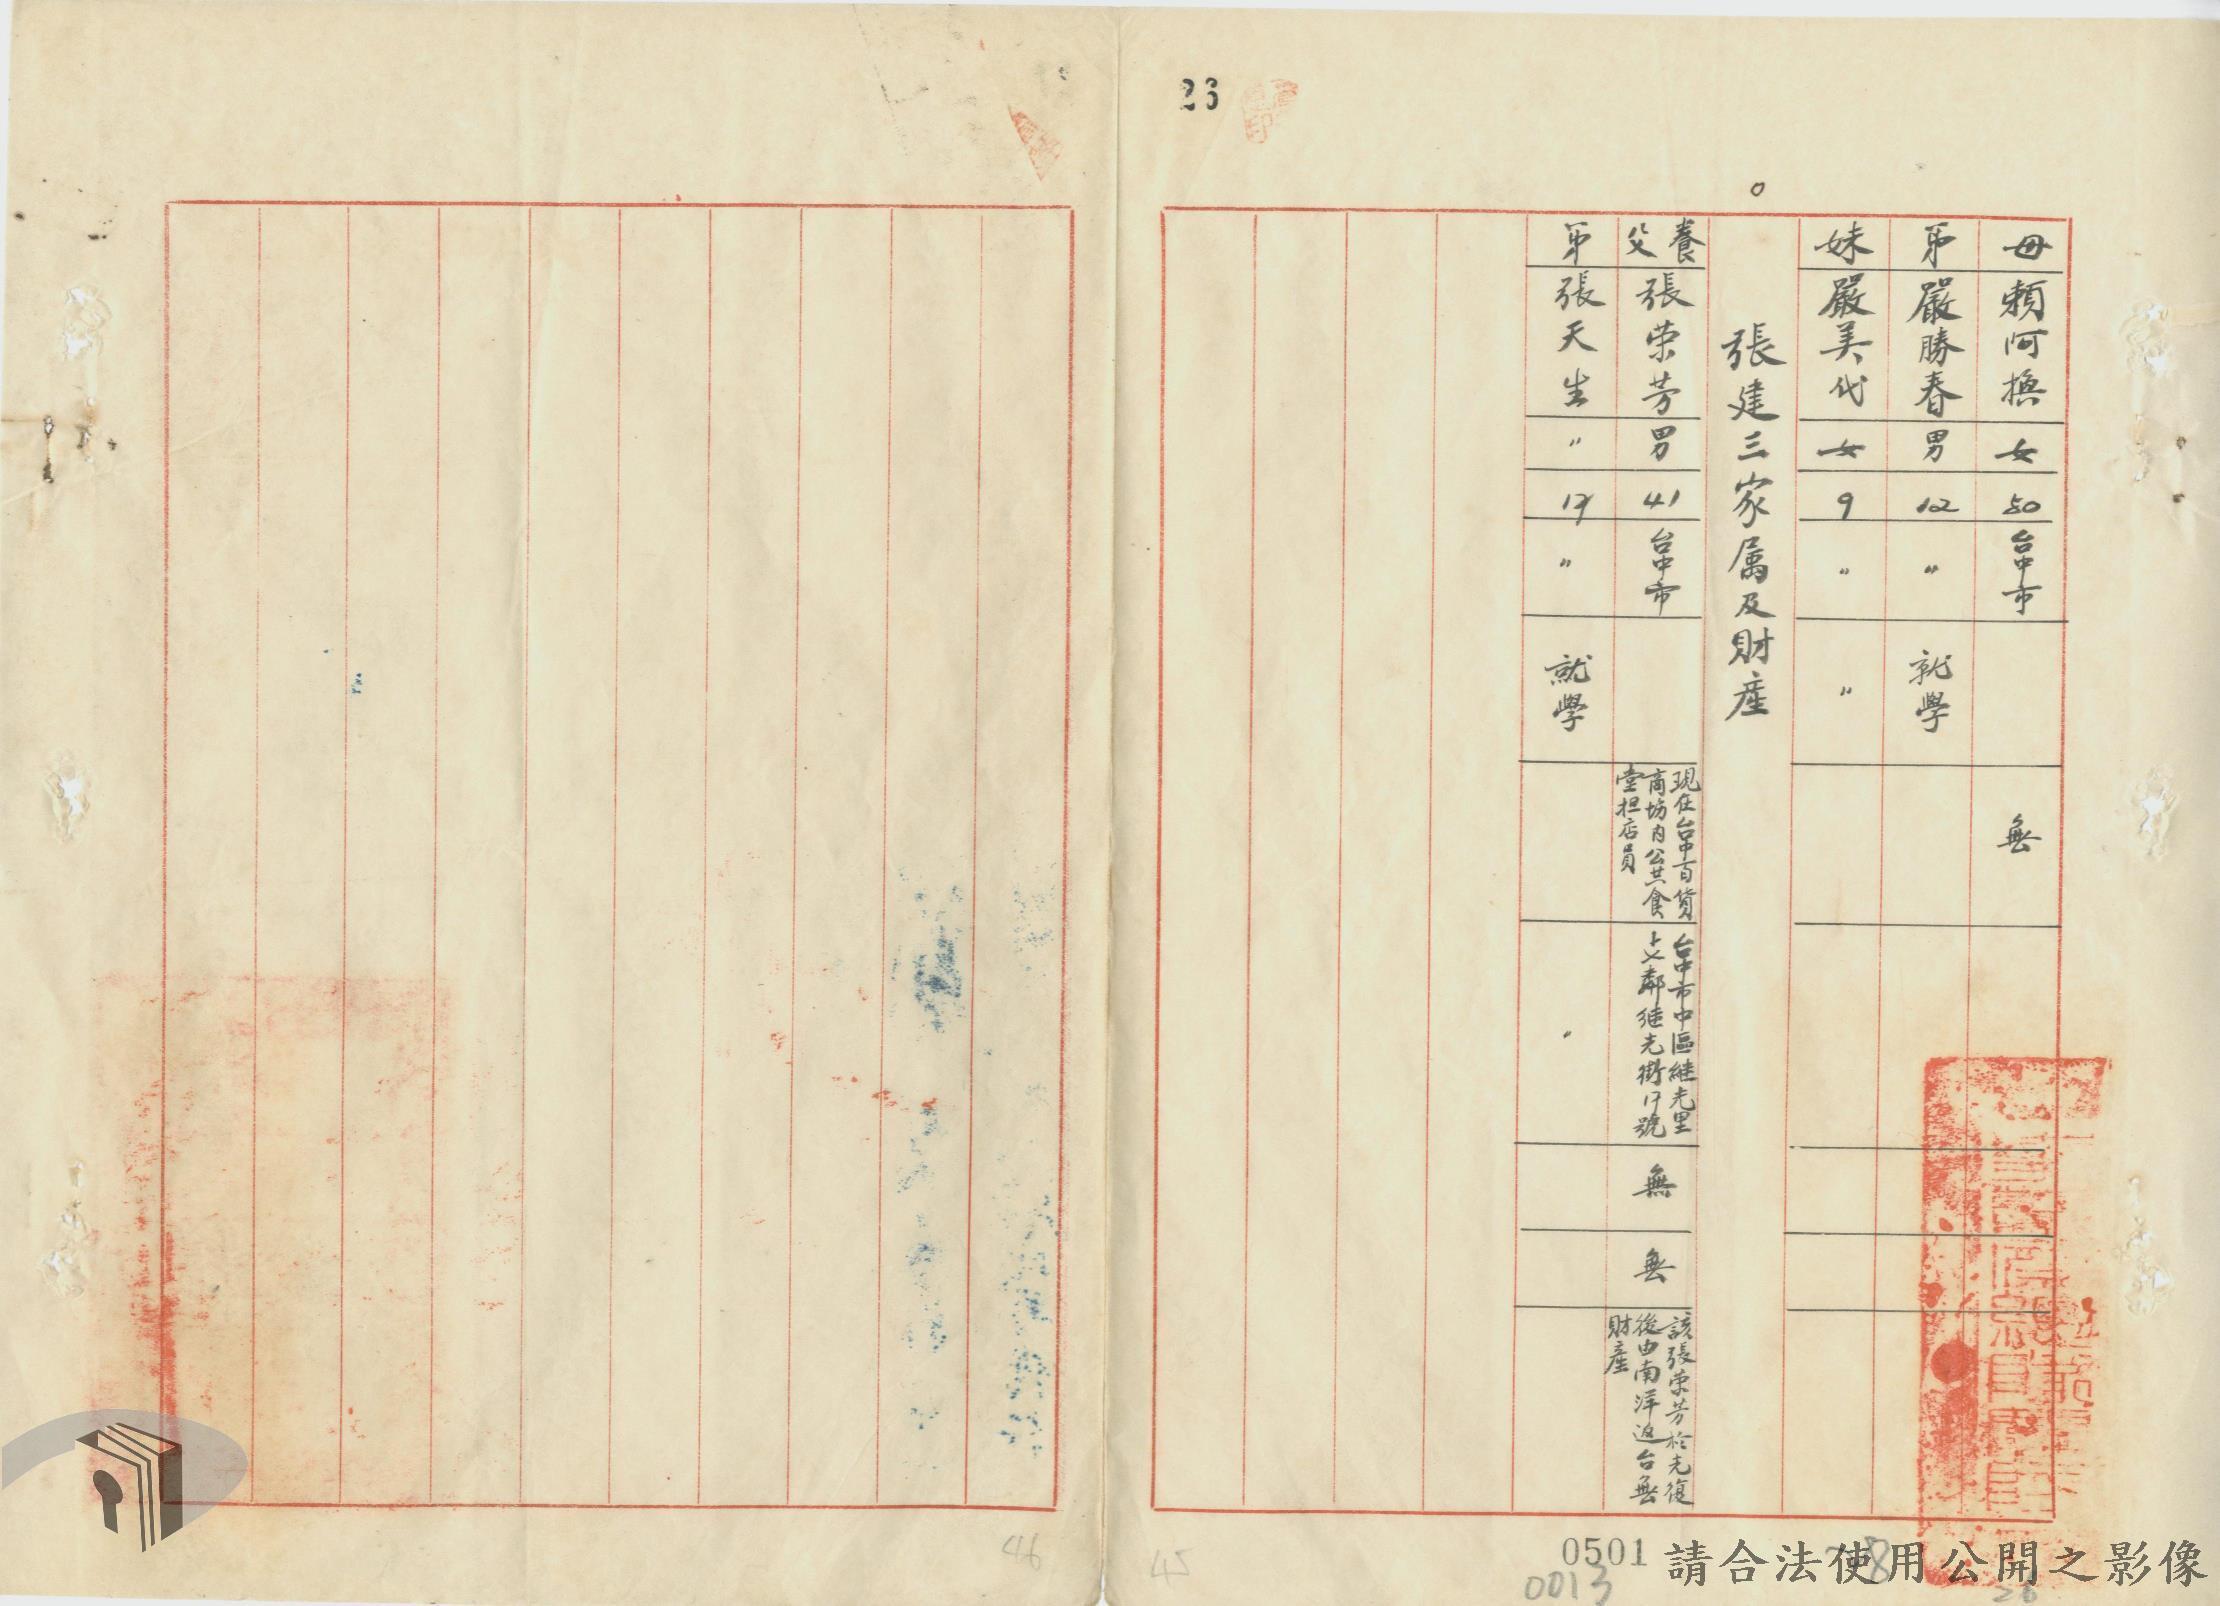 23
母 賴阿撫 女 50 台中市 無
弟 嚴勝春 男 12 〃 就學
妹 嚴美代 女 9 〃 〃
張建三家属及財産
養父 張荣芳 男 41 台中市 現住台中百貨商場内公共食堂担店員 台中市中區継光里十七鄰継光街17號 無 無 該張荣芳於光復後由南洋返台無財産
弟 張天生 〃 17 〃 就學 〃
46
45
0501
0013
請合法使用公開之影像